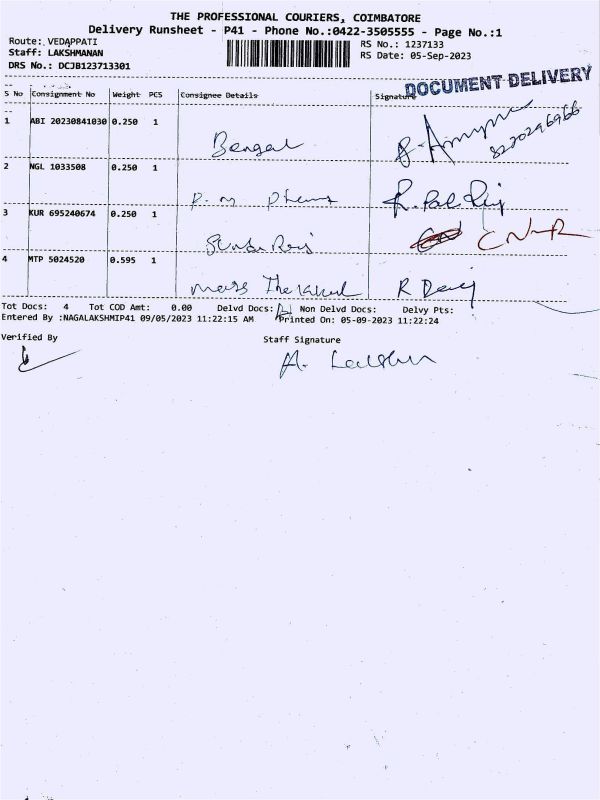 THE PROFESSIONAL COURIERS, COIMBATORE
Delivery Runsheet - P41 - Phone No.:0422-3505555 - Page No.:1
Route: VEDAPPATI
RS No.: 1237133
Staff: LAKSHMANAN
RS Date: 05-Sep-2023
DRS No.: DCJB123713301
DOCUMENT DELIVERY
S No Consignment No Weight PCS Consignee Details Signature
1 ABI 20230841030 0.250 1
Bengal
8220296966
2 NGL 1033508 0.250 1
3 KUR 695240674 0.250 1
4 MTP 5024520 0.595 1
Tot Docs: 4 Tot COD Amt: 0.00 Delvd Docs: Non Delvd Docs: Delvy Pts:
Entered By :NAGALAKSHMIP41 09/05/2023 11:22:15 AM Printed On: 05-09-2023 11:22:24
Verified By Staff Signature